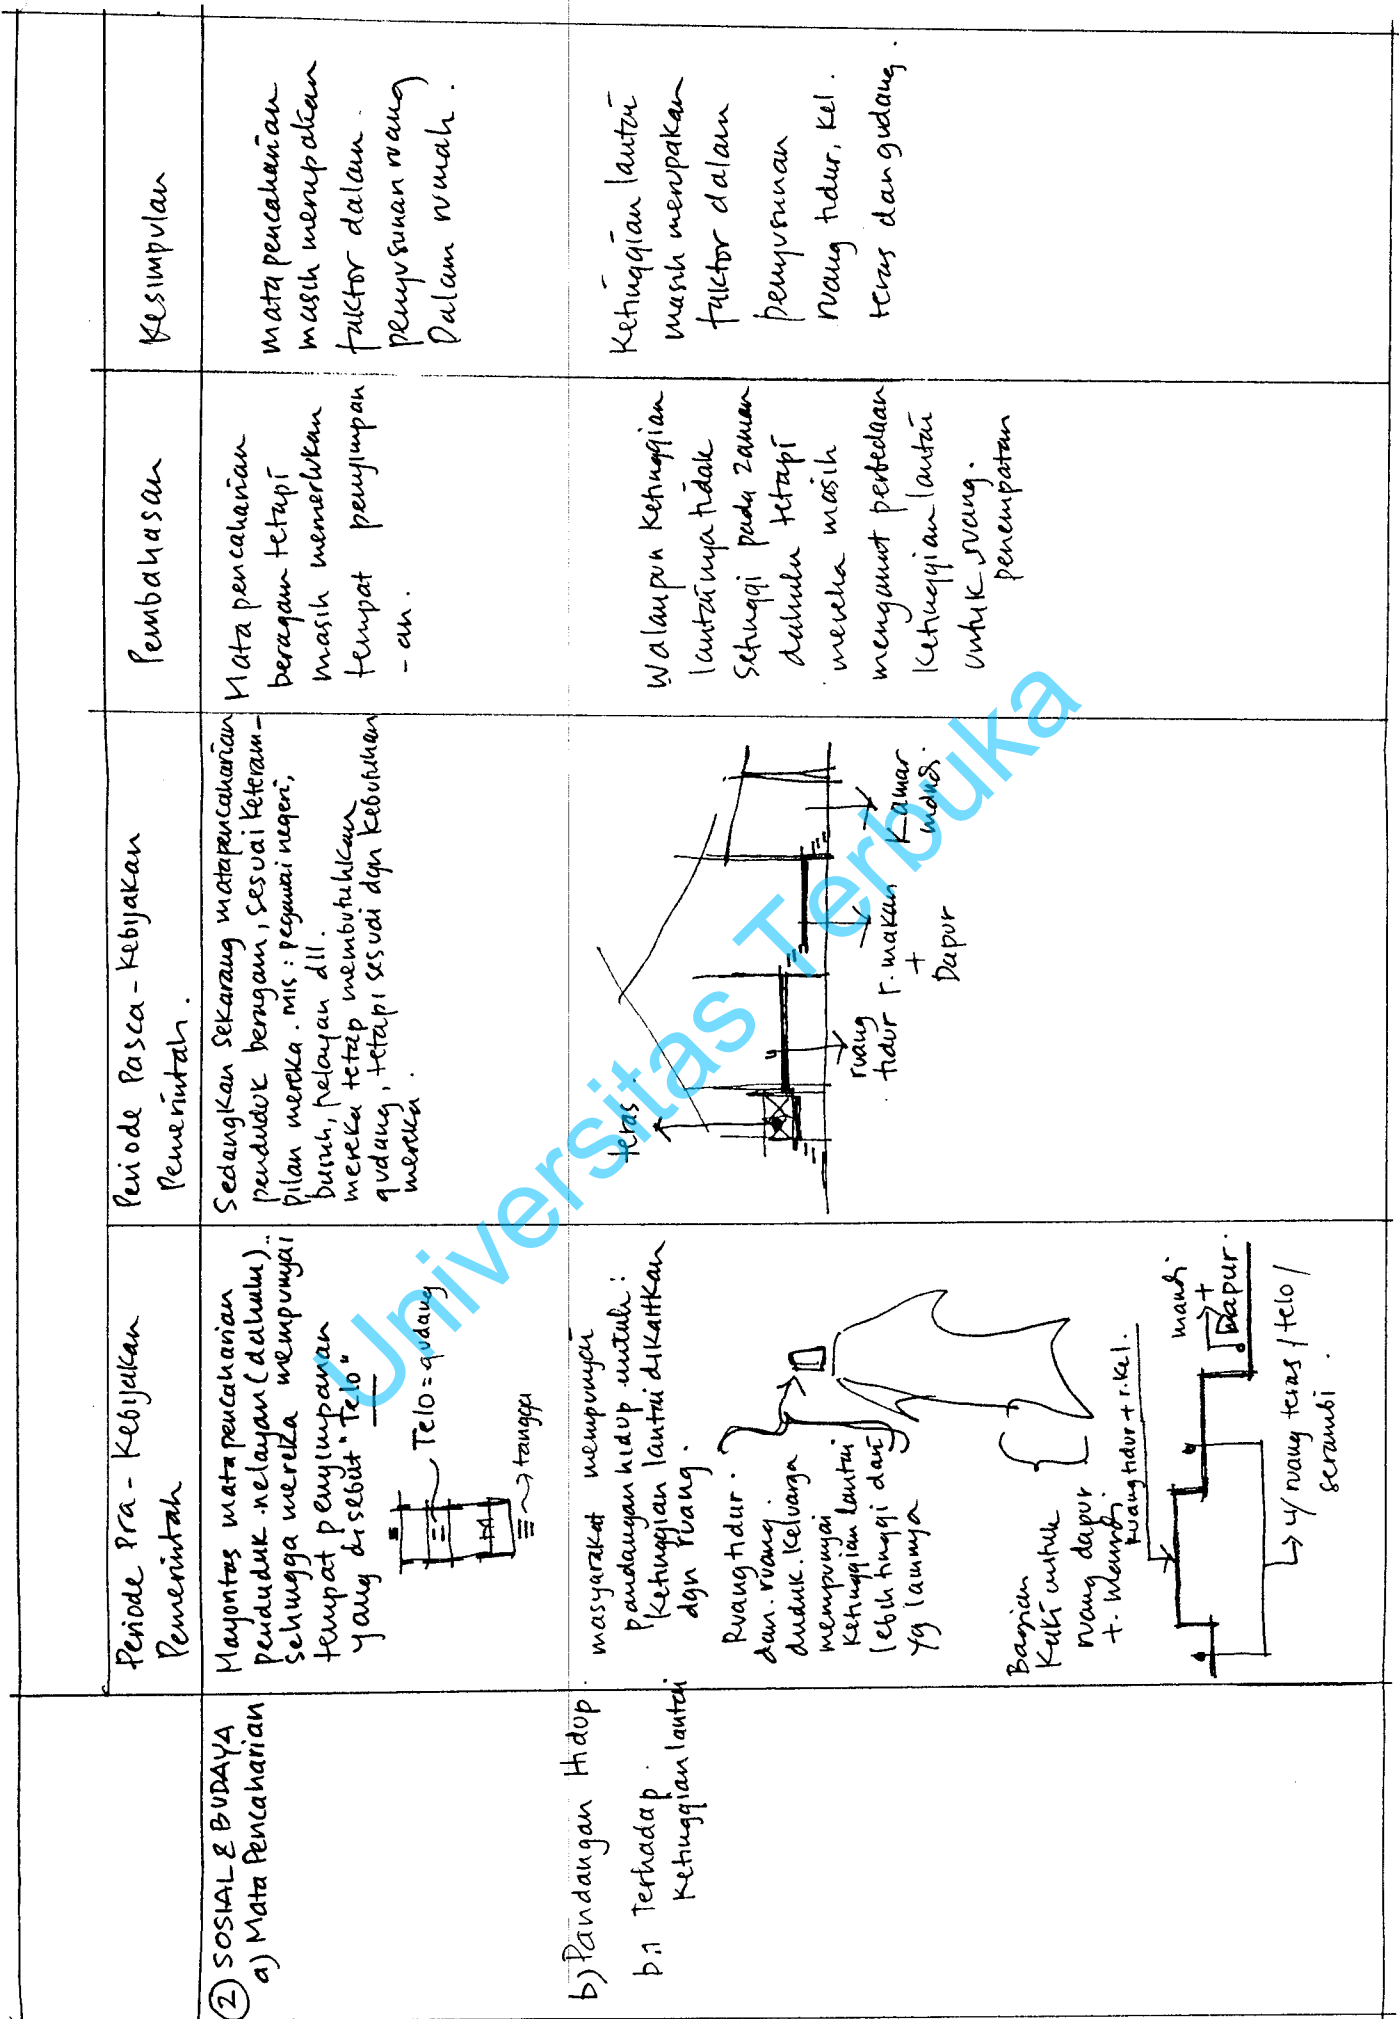 Periode Pra - Kebijakan
Pemerintah
Periode Pasca - Kebijakan
Pemerintah.
Pembahasan
Kesimpulan
② SOSIAL & BUDAYA
a) Mata Pencaharian
Mayoritas mata pencaharian
penduduk nelayan (dahulu)..
sehingga mereka mempunyai
tempat penyimpanan
yang disebut "Telo"
Telo = gudang
tangga
Sedangkan sekarang matapencaharian
penduduk beragam, sesuai keteram-
pilan mereka. mis: pegawai negeri,
buruh, pelayan dll.
mereka tetap membutuhkan
gudang, tetapi sesuai dgn kebutuhan
mereka.
Mata pencaharian
beragam tetapi
masih memerlukan
tempat penyimpan
- an.
mata pencaharian
masih merupakan
faktor dalam.
penyusunan ruang
Dalam rumah.
b) Pandangan Hidup.
b.1 Terhadap.
Ketinggian lantai
masyarakat mempunyai
pandangan hidup untuk:
Ketinggian lantai dikaitkan
dgn ruang.
Ruang tidur.
dan. ruang.
duduk. keluarga
mempunyai
ketinggian lantai
lebih tinggi dari
yg lainnya
Bagian
Kaki untuk
ruang dapur
+. Mandi.
ruang tidur + r. kel.
mandi
+
Dapur.
u/ ruang teras / telo /
serambi.
teras.
ruang
tidur
r. makan
+
Dapur
Kamar
mandi.
Walaupun ketinggian
lantainya tidak
setinggi pada zaman
dahulu tetapi
mereka masih
menganut perbedaan
ketinggian lantai
untuk ruang.
penempatan
Ketinggian lantai
masih merupakan
faktor dalam
penyusunan
ruang tidur, kel.
teras dan gudang.
Universitas Terbuka